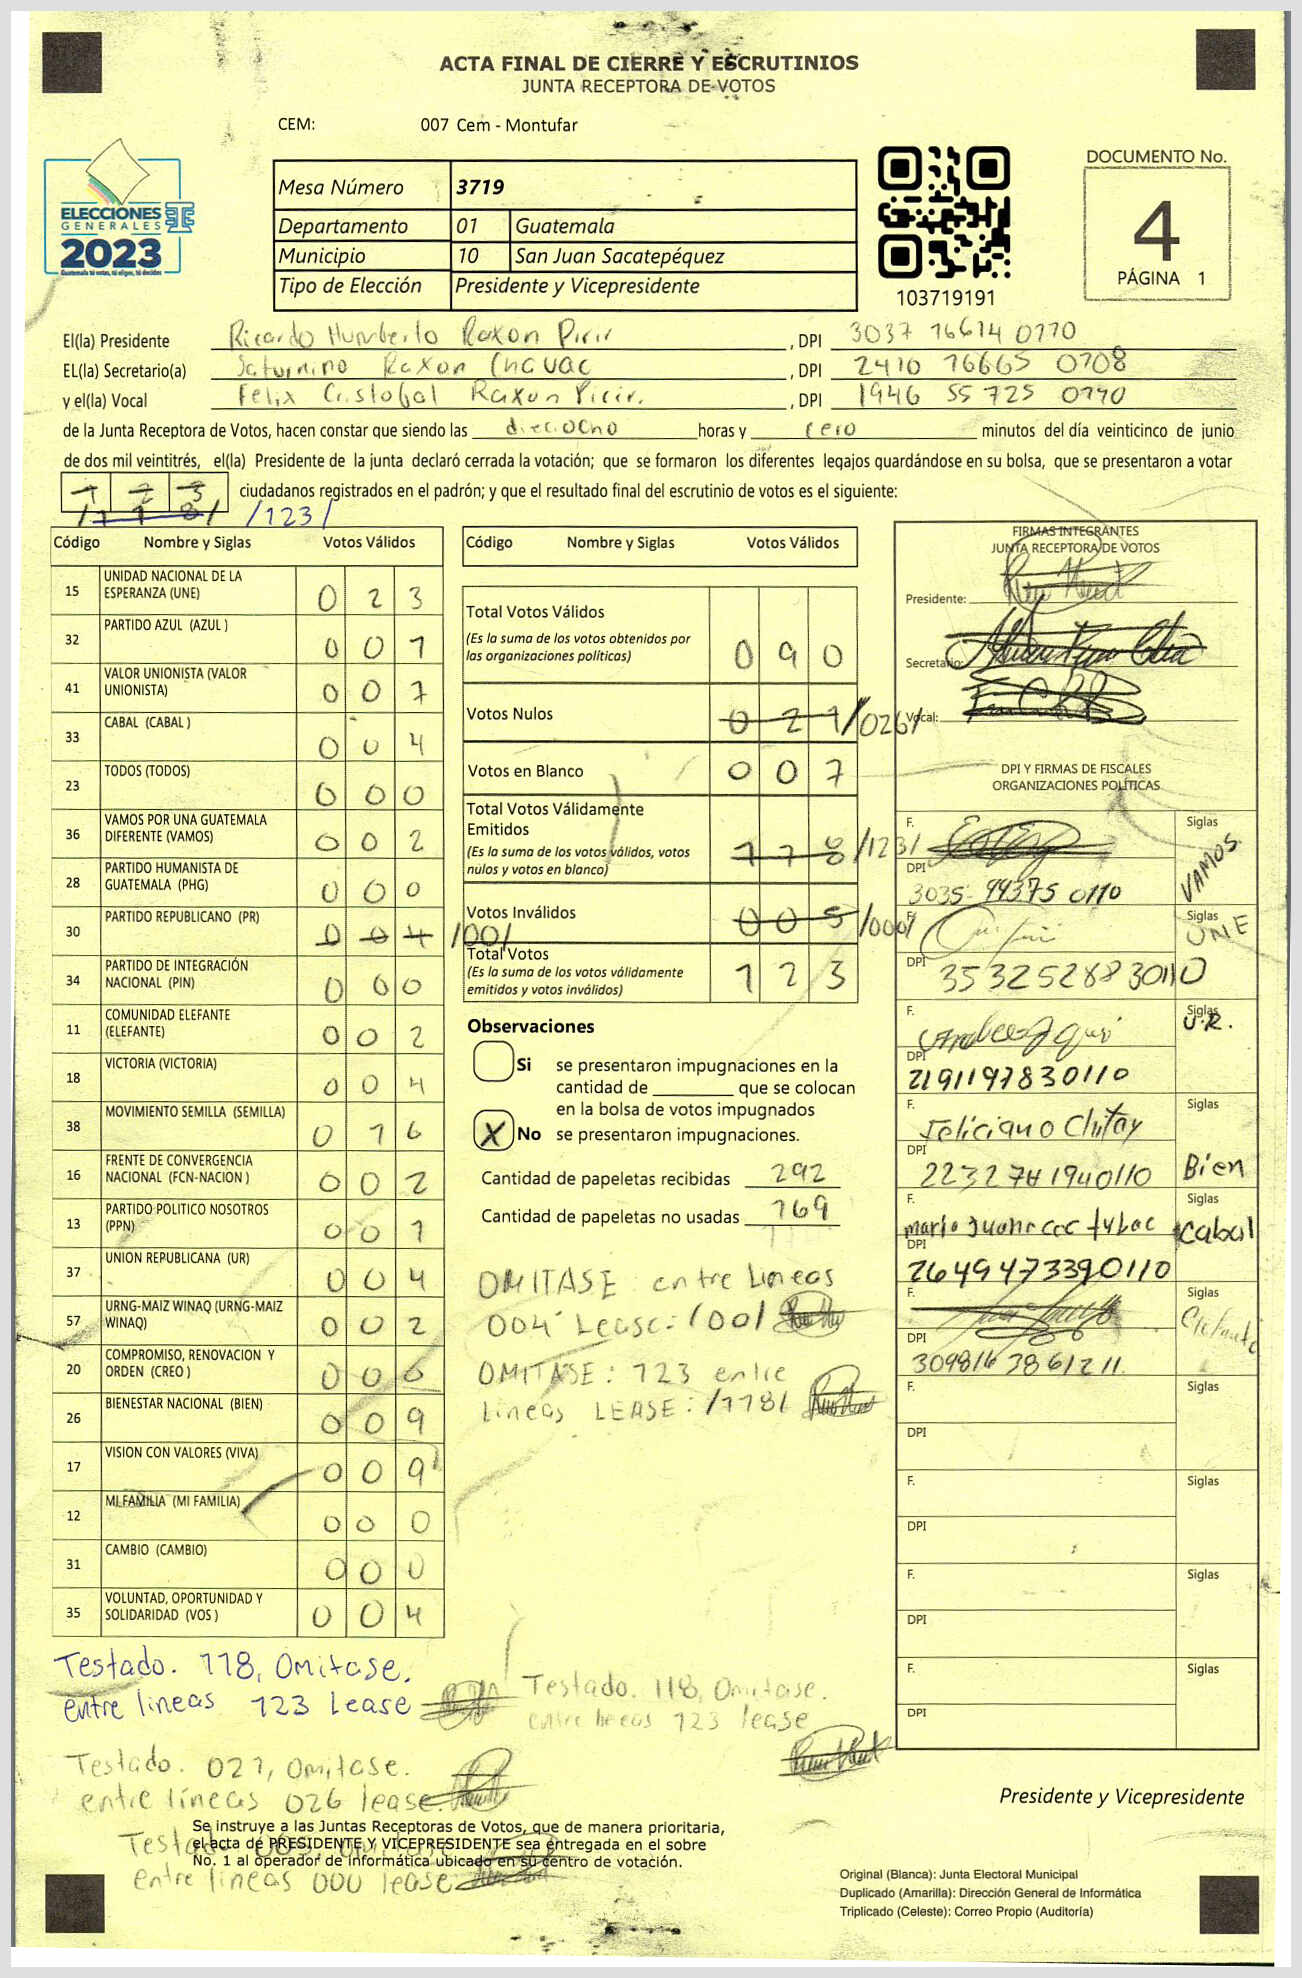 ACTA FINAL DE CIERRE Y ESCRUTINIOS
JUNTA RECEPTORA DE VOTOS
CEM: 007 Cem - Montufar
ELECCIONES
GENERALES
2023
Guatemala tú votas, tú eliges, tú decides
Mesa Número 3719
Departamento 01 Guatemala
Municipio 10 San Juan Sacatepéquez
Tipo de Elección Presidente y Vicepresidente
103719191
DOCUMENTO No.
4
PÁGINA 1
El(la) Presidente Ricardo Humberto Raxon Pirir , DPI 3037 76614 0110
EL(la) Secretario(a) Saturnino Raxon Chavac , DPI 2410 76665 0108
y el(la) Vocal Felix Cristobal Raxon Pirir. , DPI 1946 55 725 0110
de la Junta Receptora de Votos, hacen constar que siendo las dieciocho horas y cero minutos del día veinticinco de junio
de dos mil veintitrés, el(la) Presidente de la junta declaró cerrada la votación; que se formaron los diferentes legajos guardándose en su bolsa, que se presentaron a votar
1 2 3 ciudadanos registrados en el padrón; y que el resultado final del escrutinio de votos es el siguiente:
/118/ /123/
Código Nombre y Siglas Votos Válidos
15 UNIDAD NACIONAL DE LA ESPERANZA (UNE) 0 2 3
32 PARTIDO AZUL (AZUL ) 0 0 1
41 VALOR UNIONISTA (VALOR UNIONISTA) 0 0 7
33 CABAL (CABAL ) 0 0 4
23 TODOS (TODOS) 0 0 0
36 VAMOS POR UNA GUATEMALA DIFERENTE (VAMOS) 0 0 2
28 PARTIDO HUMANISTA DE GUATEMALA (PHG) 0 0 0
30 PARTIDO REPUBLICANO (PR) 0 0 4 /001/
34 PARTIDO DE INTEGRACIÓN NACIONAL (PIN) 0 0 0
11 COMUNIDAD ELEFANTE (ELEFANTE) 0 0 2
18 VICTORIA (VICTORIA) 0 0 4
38 MOVIMIENTO SEMILLA (SEMILLA) 0 1 6
16 FRENTE DE CONVERGENCIA NACIONAL (FCN-NACION ) 0 0 2
13 PARTIDO POLITICO NOSOTROS (PPN) 0 0 1
37 UNION REPUBLICANA (UR) 0 0 4
57 URNG-MAIZ WINAQ (URNG-MAIZ WINAQ) 0 0 2
20 COMPROMISO, RENOVACION Y ORDEN (CREO ) 0 0 0
26 BIENESTAR NACIONAL (BIEN) 0 0 9
17 VISION CON VALORES (VIVA) 0 0 9
12 MI FAMILIA (MI FAMILIA) 0 0 0
31 CAMBIO (CAMBIO) 0 0 0
35 VOLUNTAD, OPORTUNIDAD Y SOLIDARIDAD (VOS ) 0 0 4
Código Nombre y Siglas Votos Válidos
Total Votos Válidos
(Es la suma de los votos obtenidos por las organizaciones políticas) 0 9 0
Votos Nulos 0 2 1 /026/
Votos en Blanco 0 0 7
Total Votos Válidamente Emitidos
(Es la suma de los votos válidos, votos nulos y votos en blanco) 1 1 8 /123/
Votos Inválidos 0 0 5 /000/
Total Votos
(Es la suma de los votos válidamente emitidos y votos inválidos) 1 2 3
Observaciones
Si se presentaron impugnaciones en la
cantidad de ________ que se colocan
en la bolsa de votos impugnados
X No se presentaron impugnaciones.
Cantidad de papeletas recibidas 292
Cantidad de papeletas no usadas 169
OMITASE entre Lineas
004 Lease: /001/
OMITASE: 123 entre
Lineas LEASE: /118/
FIRMAS INTEGRANTES
JUNTA RECEPTORA DE VOTOS
Presidente:
Secretario:
Vocal:
DPI Y FIRMAS DE FISCALES
ORGANIZACIONES POLÍTICAS
F. Siglas VAMOS
DPI 3035 99375 0110
F. Siglas UNE
DPI 3532528830110
F. Siglas U.R.
DPI 2191197830110
F. Feliciano Chitay Siglas Bien
DPI 2232781940110
F. Siglas Cabal
DPI 2649473390110
F. Siglas Elefante
DPI 309816 38 61211.
F. Siglas
DPI
F. Siglas
DPI
F. Siglas
DPI
F. Siglas
DPI
Testado. 118, Omitase.
entre lineas 123 Lease
Testado. 118, Omitase.
entre lineas 123 lease
Testado. 021, Omitase.
entre líneas 026 lease.
Testado 005, Omitase
entre lineas 000 lease
Se instruye a las Juntas Receptoras de Votos, que de manera prioritaria,
el acta de PRESIDENTE Y VICEPRESIDENTE sea entregada en el sobre
No. 1 al operador de informática ubicado en su centro de votación.
Presidente y Vicepresidente
Original (Blanca): Junta Electoral Municipal
Duplicado (Amarilla): Dirección General de Informática
Triplicado (Celeste): Correo Propio (Auditoría)